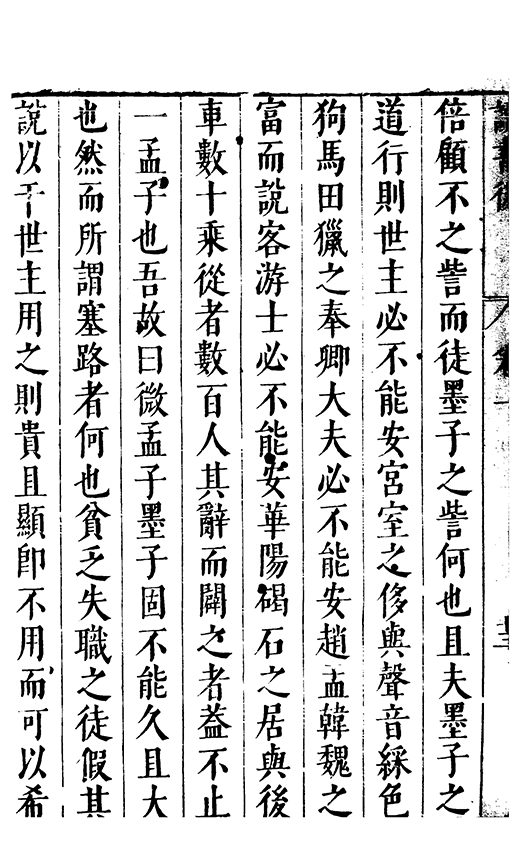 倍顧不之訾而徒墨子之訾何也且夫墨子之
道行則世主必不能安宮室之侈與聲音綵色
狗馬田獵之奉卿大夫必不能安趙孟韓魏之
富而說客游士必不能安華陽碣石之居與後
車數十乘從者數百人其辭而闢之者葢不止
一孟子也吾故曰微孟子墨子固不能久且大
也然而所謂塞路者何也貧乏失職之徒假其
說以干世主用之則貴且顯卽不用而可以希